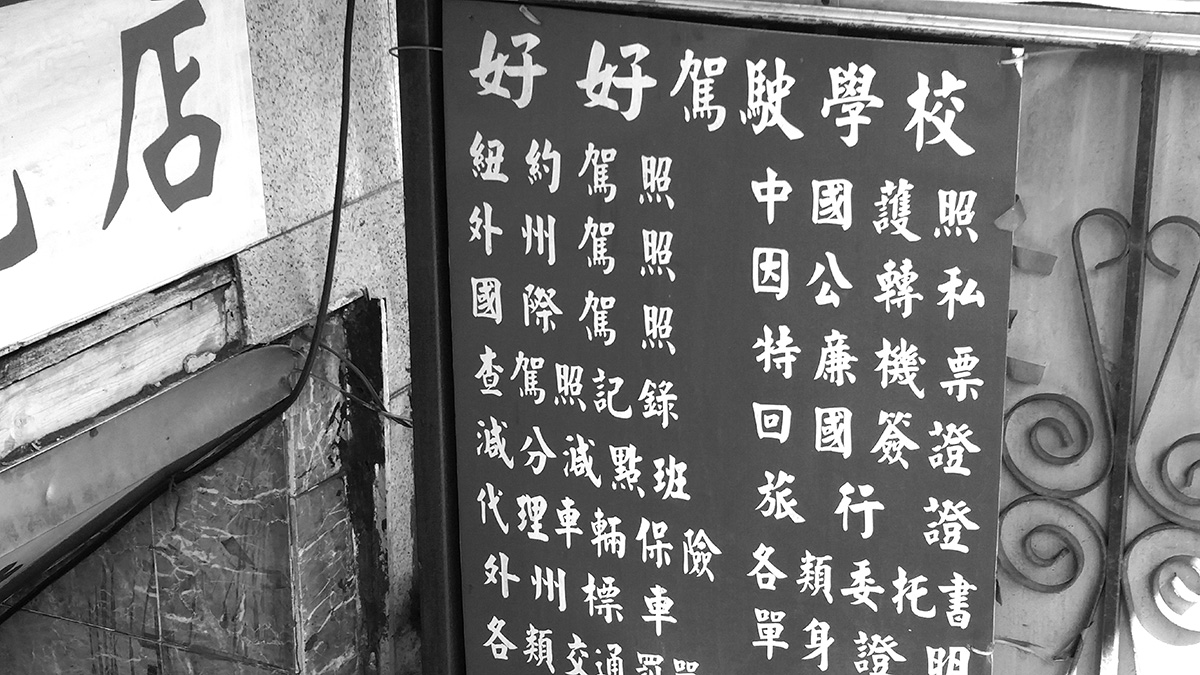 店
好好駕駛學校
紐約駕照
外州駕照
國際駕照
查駕照記錄
減分減點班
代理車輛保險
外州標車
各類交通
中國護照
因公轉私
特廉機票
回國簽證
旅行證
各類委托書
單身證明